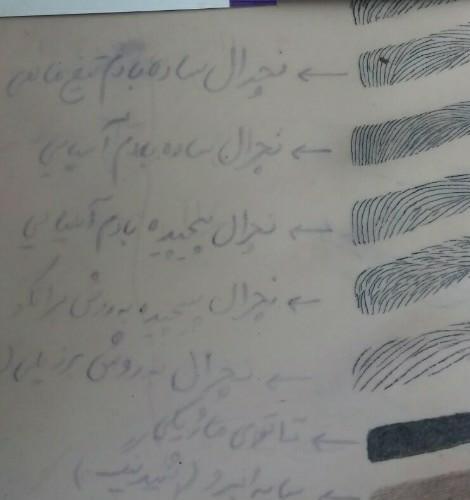 ← نچرال ساده بادم تیغ فلامی
← نچرال ساده بادم آسیایی
← نچرال پیچیده بادم آسیایی
← نچرال پیچیده به روش
← نچرال به روش برزیلی
← تاتوی ماژیکی
← سایه ابرو (شیدینگ)